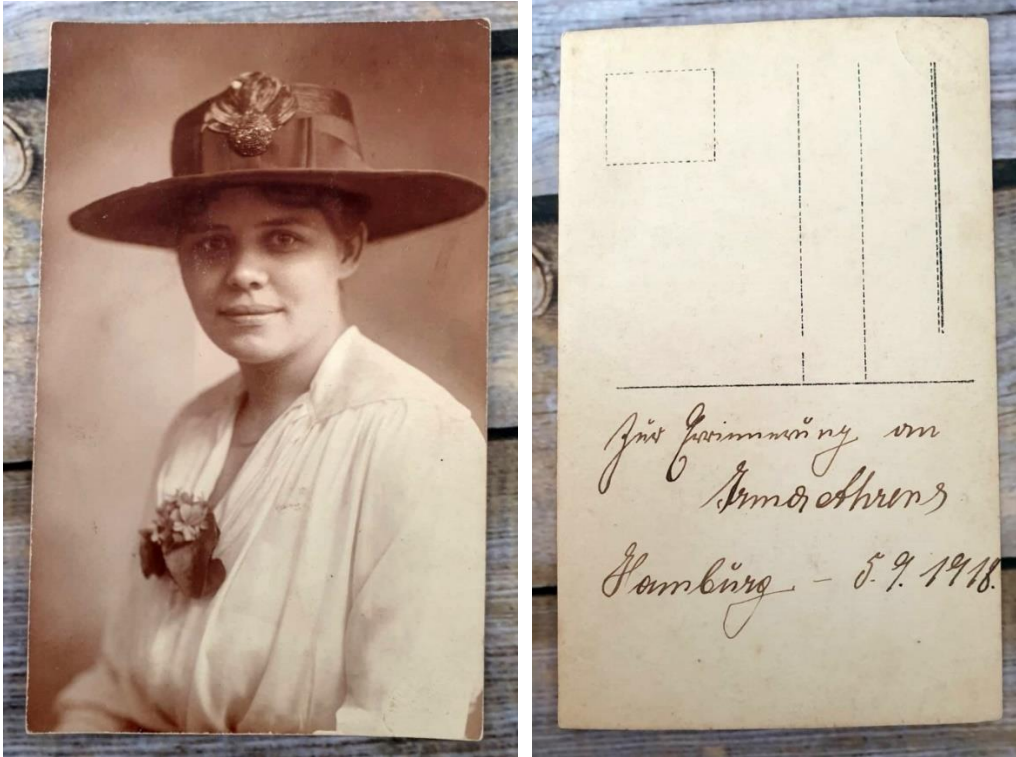 Zur Erinnerung an
Irma Ahrens
Hamburg – 5.9.1918.